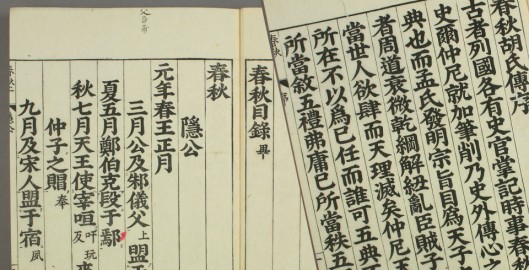 春秋胡氏傳序
古者列國各有史官掌記時事春秋
史爾仲尼就加筆削乃史外傳心之
典也而孟氏發明宗旨目為天子
者周道衰微乾綱解紐亂臣賊子
當世人欲肆而天理滅矣仲尼天
所在不以為己任而誰可五典
所當敘五禮弗庸己所當秩五
春秋目錄畢
春秋
隱公
元年春王正月
三月公及邾儀父上盟于
夏五月鄭伯克段于鄢
秋七月天王使宰咺吁玩反來
仲子之賵奉
九月及宋人盟于宿夙